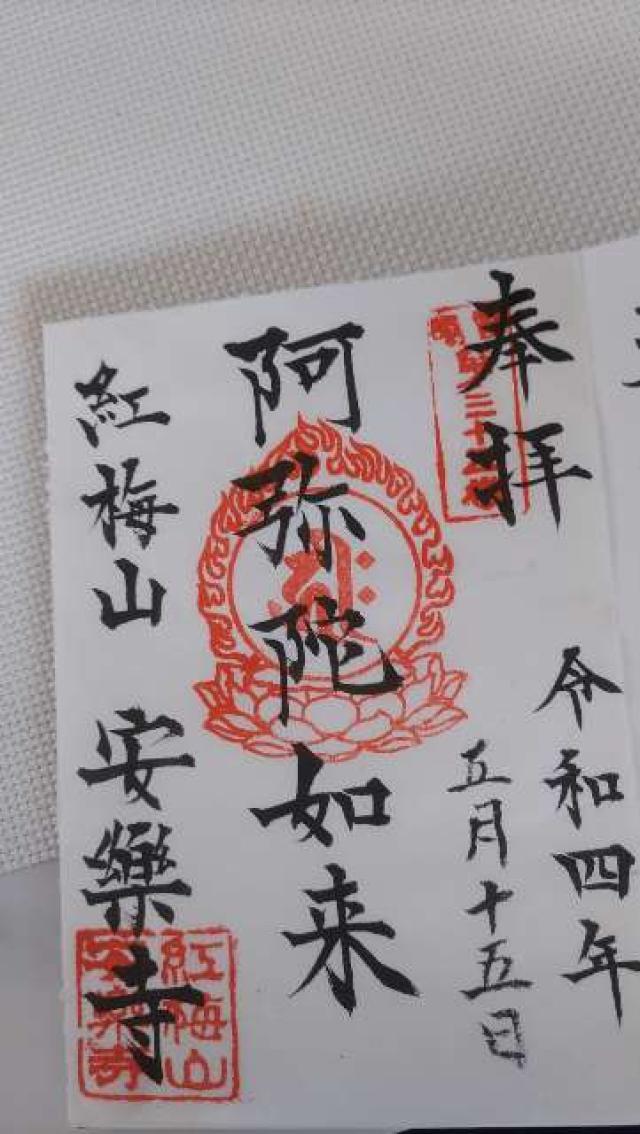 奉拝
令和四年
五月十五日
阿弥陀如来
紅梅山 安樂寺
紅梅山
安樂寺